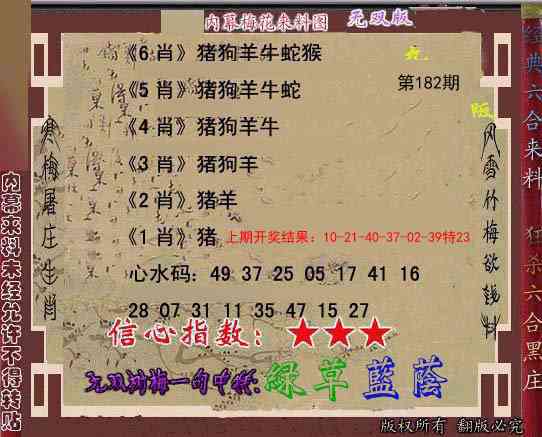 内幕梅花来料图 无双版
《6 肖》猪狗羊牛蛇猴
第182期
《5 肖》猪狗羊牛蛇
《4 肖》猪狗羊牛
《3 肖》猪狗羊
《2 肖》猪羊
《1 肖》猪 上期开奖结果：10-21-40-37-02-39特23
心水码：49 37 25 05 17 41 16
28 07 31 11 35 47 15 27
信心指数：★★★
綠草藍蔭
版权所有 翻版必究
寒梅屠庄生肖
内幕来料未经允许不得转贴
风雪竹梅欲钱料
经典六合来料
狂杀六合黑庄